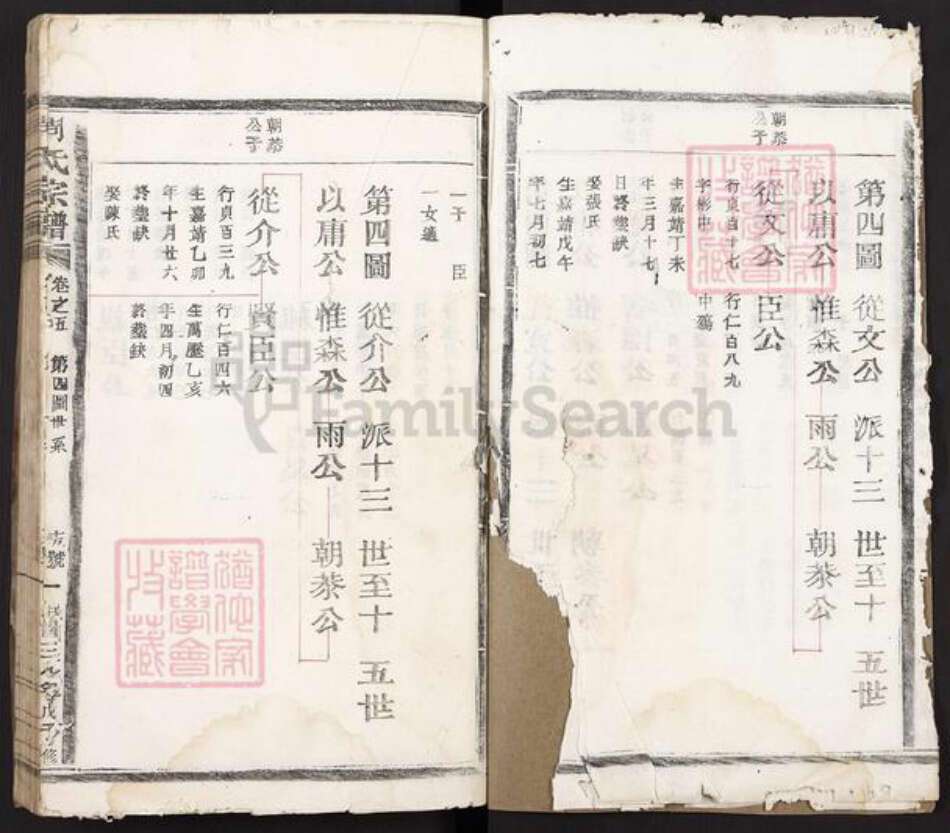 朝菾公子
第四圖 從文公 派十三 世至十 五世
以庸公 惟森公 雨公 朝菾公
從文公 臣公
行貞百十七 行仁百八九
字彬中
生嘉靖丁未
年三月十七
日終塟缺
娶張氏
生嘉靖戊午
年七月初七
一子 臣
一女適
朝菾公子
第四圖 從介公 派十三 世至十 五世
以庸公 惟森公 雨公 朝菾公
從介公 賢臣公
行貞百三九 行仁百四六
生嘉靖乙卯 生萬歷乙亥
年十月廿六 年四月初四
終塟缺 終塟缺
娶陳氏
周氏宗譜 卷之五 第四圖世系
FamilySearch